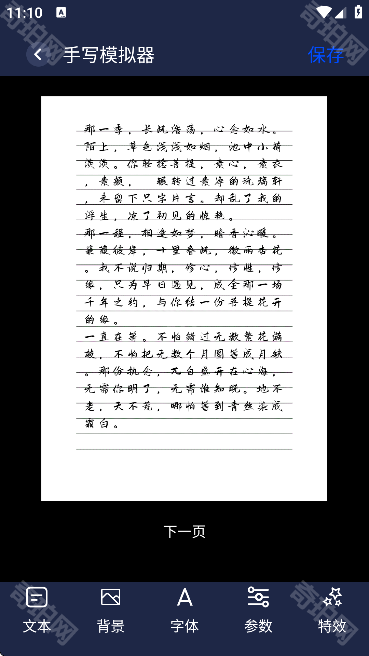 11:10
手写模拟器
保存
那一季,长风浩荡,心念如水。
陌上,草色浅浅如烟,池中小荷
淡淡。你轻捻菩提,素心,素衣
,素颜, 辗转过素净的流绮轩
,未留下只字片言。却乱了我的
浮生,凉了初见的惊艳。
那一程,相遇如梦,暗香沁暖。
。我不说归期,修心,修性,修
缘,只为早日遇见,成全那一场
千年之约,与你结一份菩提花开
的缘。
一直在等。不怕错过无数繁花满
枝,不怕把无数个月圆等成月缺
。那份执念,兀自盛开在心海,
无需你明了,无需谁知晓。地不
老,天不荒,哪怕等到青丝染成
霜白。
下一页
文本
背景
字体
参数
特效
奇珀网
奇珀网
奇珀网
奇珀网